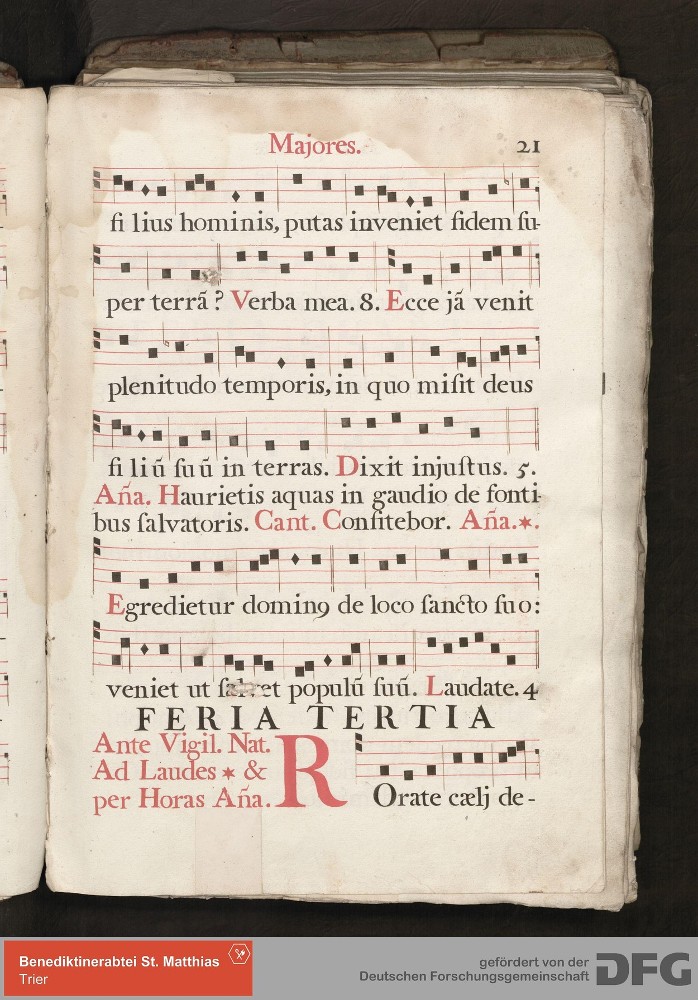 Majores. 21
fi lius hominis, putas inveniet fidem ſu-
per terrã? Verba mea. 8. Ecce jã venit
plenitudo temporis, in quo miſit deus
fi liũ ſuũ in terras. Dixit injuſtus. 5.
Aña. Haurietis aquas in gaudio de fonti-
bus ſalvatoris. Cant. Confitebor. Aña.✶.
Egredietur dominꝯ de loco ſancto ſuo:
veniet ut ſalvet populũ ſuũ. Laudate. 4
FERIA TERTIA
Ante Vigil. Nat.
Ad Laudes ✶ &
per Horas Aña.
ROrate cælj de-
Benediktinerabtei St. Matthias
Trier
gefördert von der
Deutschen Forschungsgemeinschaft
DFG